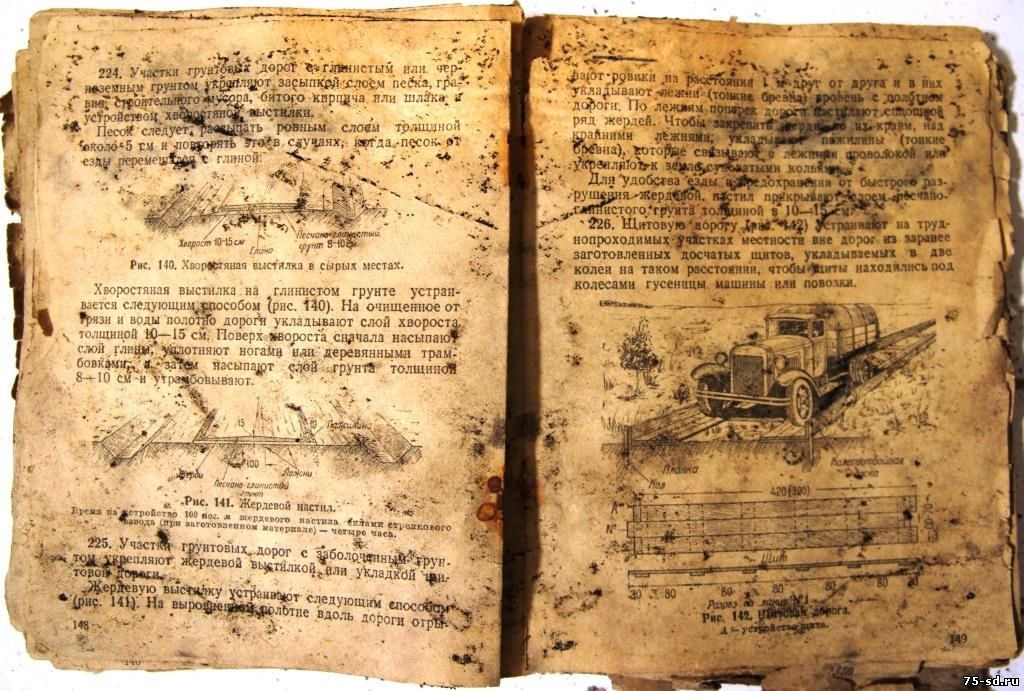 224. Участки грунтовых дорог с глинистым или чер-
ноземным грунтом укрепляют засыпкой слоем песка, гра-
вия, строительного мусора, битого кирпича или шлака и
устройством хворостяной выстилки.
Песок следует рассыпать ровным слоем толщиной
около 5 см и повторять это в случаях, когда песок от
езды перемешался с глиной.
Хворост 10-15см
Глина
Песчано-глинистый
грунт 8-10см
Рис. 140. Хворостяная выстилка в сырых местах.
Хворостяная выстилка на глинистом грунте устраи-
вается следующим способом (рис. 140). На очищенное от
грязи и воды полотно дороги укладывают слой хвороста
толщиной 10—15 см. Поверх хвороста сначала насыпают
слой глины, уплотняют ногами или деревянными трам-
бовками, а затем насыпают слой грунта толщиной
8—10 см и утрамбовывают.
15
10
Пажилина
Жерди
100
Лежни
Песчано-глинистой
грунт
Рис. 141. Жердевой настил.
Время на устройство 100 пог. м жердевого настила силами стрелкового
взвода (при заготовленном материале) — четыре часа.
225. Участки грунтовых дорог с заболоченным грун-
том укрепляют жердевой выстилкой или укладкой щи-
товой дороги.
Жердевую выстилку устраивают следующим способом
(рис. 141). На выровненном полотне вдоль дороги отры-
148
вают ровики на расстоянии 1 м друг от друга и в них
укладывают лежни (тонкие бревна) вровень с полотном
дороги. По лежням поперек дороги настилают сплошной
ряд жердей. Чтобы закрепить жерди по их краям, над
крайними лежнями, укладывают пажилины (тонкие
бревна), которые связывают с лежнями проволокой или
укрепляют к земле суковатыми кольями.
Для удобства езды и предохранения от быстрого раз-
рушения жердевой настил прикрывают слоем песчано-
глинистого грунта толщиной в 10—15 см.
226. Щитовую дорогу (рис. 142) устраивают на труд-
нопроходимых участках местности вне дорог из заранее
заготовленных досчатых щитов, укладываемых в две
колеи на таком расстоянии, чтобы щиты находились под
колесами гусеницы машины или повозки.
Планка
Кол
Колесоотбойная
доска
420(300)
А
N
Щит
30 80 80 80 80 80
Разрез по линии N
Рис. 142. Щитовая дорога.
А — устройство щита.
149
75-sd.ru